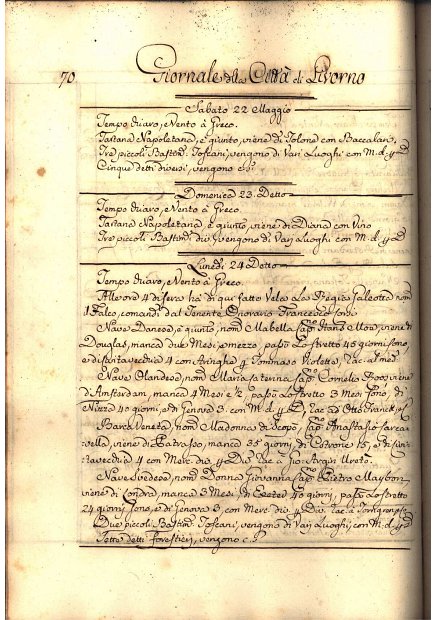 70 Giornale della Città di Livorno
Sabato 22 Maggio
Tempo chiaro, e Vento à Greco.
Tartana Napoletana, è giunto, viene di Tolone con Baccalari,
Tre piccoli Bastim.ti Toscani, vengono di Varj Luoghi con M. d.
Cinque detti diversi, vengono
Domenica 23 Detto
Tempo chiaro, e Vento à Greco
Tartana Napoletana è giunto, viene di Diana con Vino
Tre piccoli Bastim.ti div. vengono di Varj Luoghi con M. d.
Lunedì 24 Detto
Tempo chiaro, e Vento à Greco.
All'ora 4 di sera hà di qui fatto Vela la Regia Galeotta nom.
Falco, comand. dal Tenente Onoravio Francesco
Nave Danese, è giunto, nom. Mabella Cap.no Hans Mou, viene di
Douglas, manca due Mesi, e mezzo, passò lo Stretto 45 giorni sono,
e di Civitavecchia 4 con Aringhe
Nave Olandese, nom. Maria Caterina Cap.no Cornelio viene
d'Amsterdam, manca 4 Mesi e 1/2 passò lo Stretto 3 Mesi sono, di
Nizza 40 giorni, e di Genova 3. con M. d.
Barca Veneta, nom. Madonna di Scopo Cap.no Anastasio
viene di Patrasso, manca 35 giorni, di Cotrone 15, e di Civi-
tavecchia 4 con Merc. div.
Nave Svedese, nom. Donna Giovanna Cap.no Pietro
viene di Londra, manca 3 Mesi, di Exeter 40 giorni, passò lo Stretto
24 giorni sono, e di Genova 3 con Merc. div.
Due piccoli Bastim.ti Toscani, vengono di Varj Luoghi, con M. d.
Sette detti forestieri, vengono